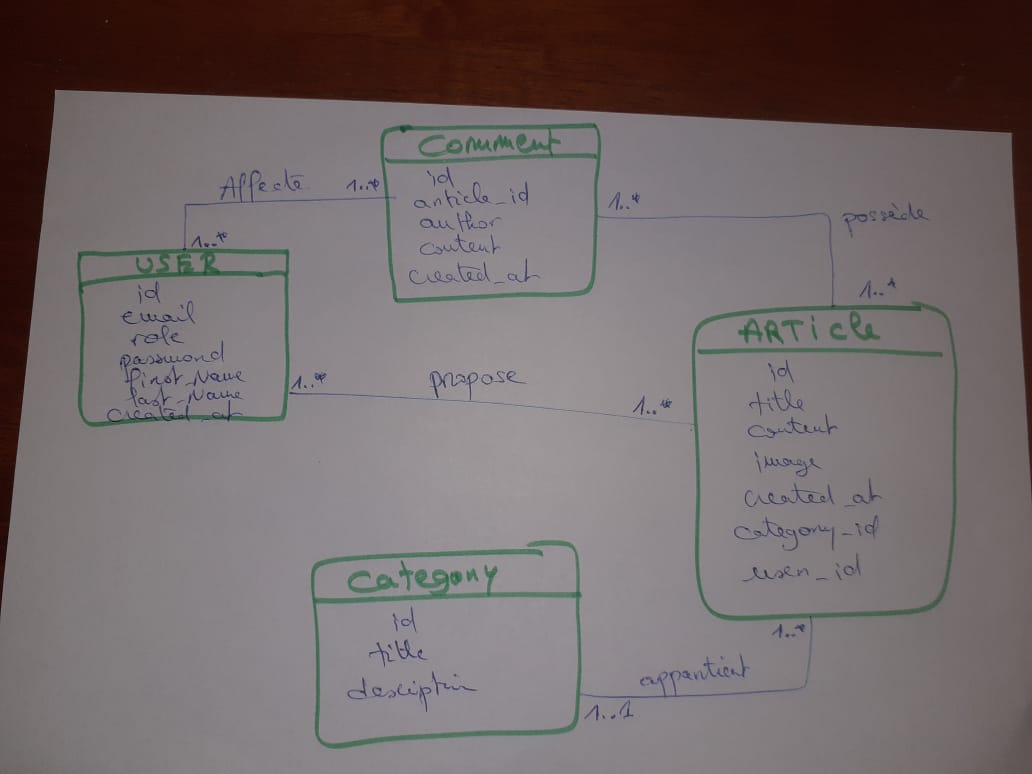 Comment
id
article_id
author
content
created_at
Affecte
1..*
1..*
USER
id
email
role
password
first_Name
last_Name
created_at
1..*
possède
1..*
ARTicle
id
title
content
image
created_at
category_id
user_id
1..*
propose
1..*
Category
id
title
desciptin
1..*
appartient
1..1